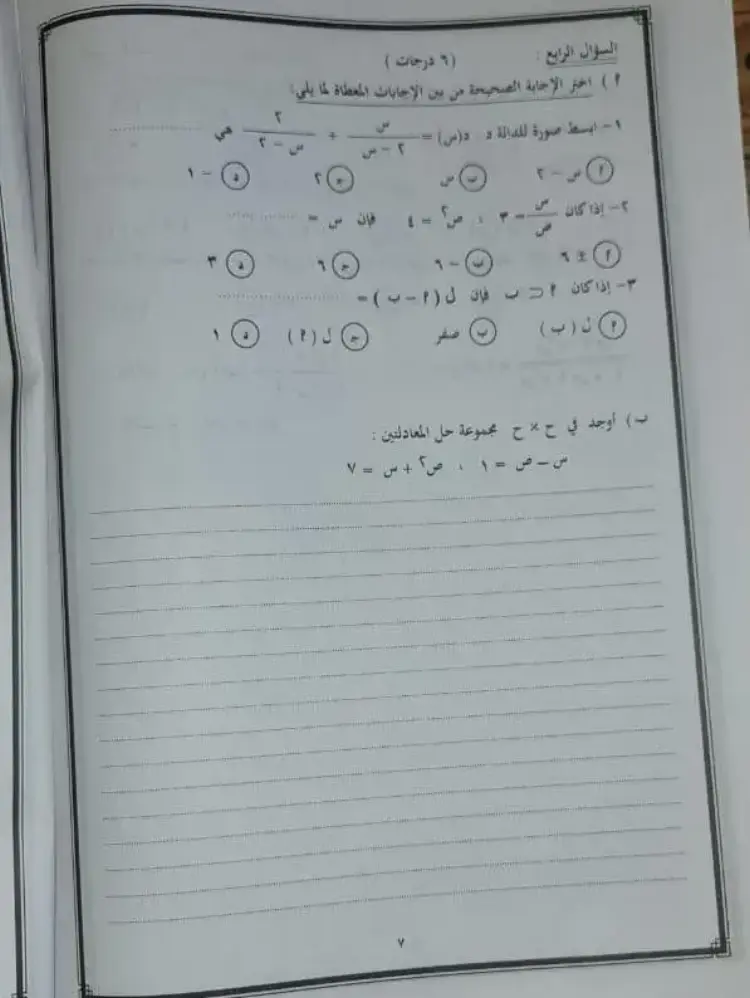 السؤال الرابع : ( ٦ درجات )
٢ ) اختر الإجابة الصحيحة من بين الإجابات المعطاة لما يلي:
١- ابسط صورة للدالة د د(س) = س / ٢ - س + ٢ / س - ٢ هي ..........
(أ) س - ٢ (ب) س (ج) ٢ (د) - ١
٢- إذا كان س / ص = ٣ ، ص٢ = ٤ فإن س = ..........
(أ) ± ٦ (ب) - ٦ (ج) ٦ (د) ٣
٣- إذا كان أ ⊂ ب فإن ل ( أ - ب ) = ..........
(أ) ل ( ب ) (ب) صفر (ج) ل ( أ ) (د) ١
ب) أوجد في ح × ح مجموعة حل المعادلتين :
س - ص = ١ ، ص٢ + س = ٧
٧